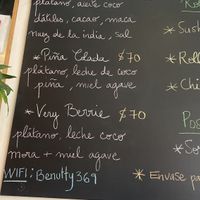 plátano, aceite coco
dátiles, cacao, maca
nuez de la india, sal
* Piña Colada $70
plátano, leche de coco
piña, miel agave
* Very Berrie $70
plátano, leche coco
mora + miel agave
WIFI: Benutty369
* Sushi
* Roll
* Chi
Pos
* So
* Envase pa